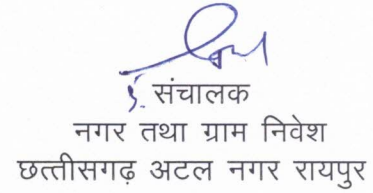 संचालक
नगर तथा ग्राम निवेश
छत्तीसगढ़ अटल नगर रायपुर